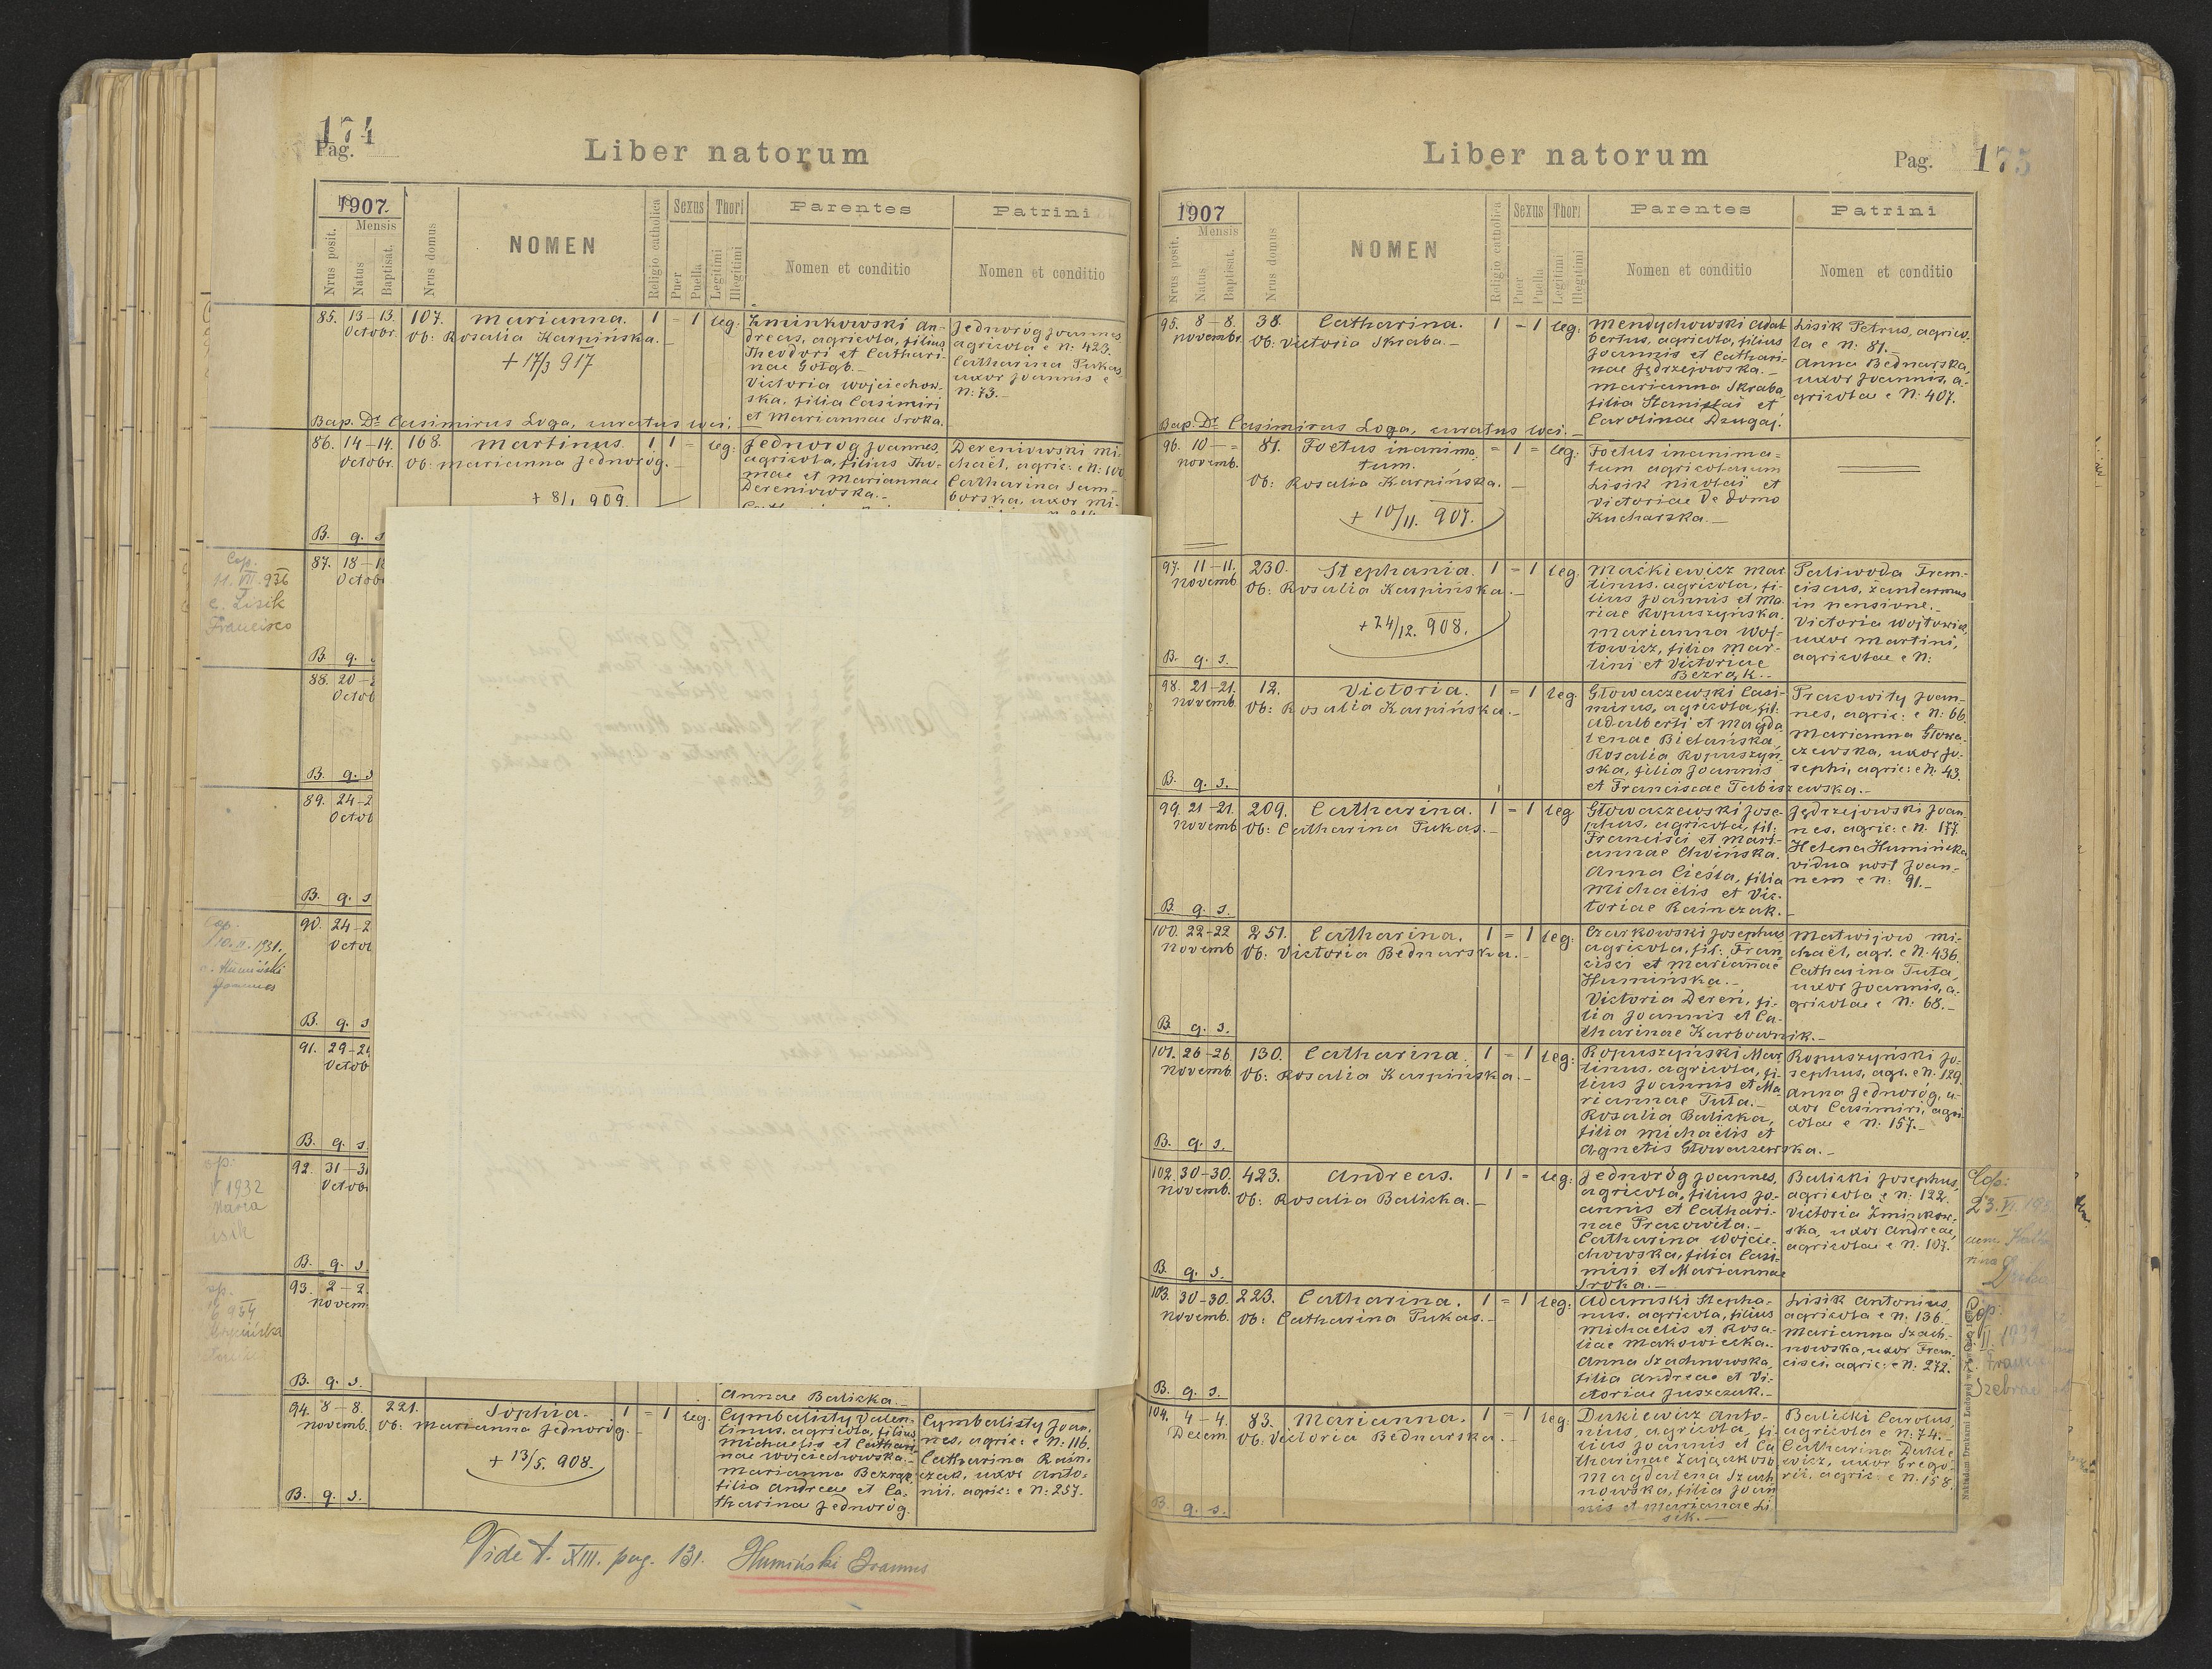 174
Pag.
Liber natorum
1907.
Nrus posit.
Mensis
Natus
Baptisat.
Nrus domus
NOMEN
Religio catholica
Sexus
Puer
Puella
Thori
Legitimi
Illegitimi
Parentes
Nomen et conditio
Patrini
Nomen et conditio
85. 13-13. Octobr. 107. Marianna. 1 - 1 leg:
Ob: Rosalia Karpińska.
+ 17/3 917
Żminkowski An-
dreas, agricola, filius
Theodori et Cathari-
nae Gołąb.-
Victoria Wojciechow-
ska, filia Casimiri
et Mariannae Sroka.
Jednoróg Joannes
agricola e N: 423.
Catharina Pukas
uxor Joannis e
N: 73.-
Bap. Dr Casimirus Loga, curatus loci.
86. 14-14. Octobr. 168. Martinus. 1 1 - leg:
Ob: Marianna Jednoróg.-
+ 8/1 909.
Jednoróg Joannes,
agricola, filius Tho-
mae et Mariannae
Dereniowska.-
Dereniowski Mi-
chaël, agric: e N: 100
Catharina Sam-
borska, uxor Mi-
B. q. s
Cop.
11. VII. 936
c. Lisik
Francisco
87. 18-18
Octob
B. q.
88. 20-2
Octob
B. q. s
89. 24-2
Octob
B. q. s
Cop.
10. II. 1931.
c. Humiński
Joannes
90. 24-2
Octob
B. q. s
91. 29-29
Octob
B. q. s.
1932
Maria
Lisik
92. 31-31
Octob
B. q. s.
93. 2-2.
Novem
B. q. s.
Annae Baliska.-
94. 8-8. Novemb. 221. Sophia. 1 = 1 leg:
Ob: Marianna Jednoróg.
+ 13/5. 908.
Cymbalisty Valen-
tinus, agricola, filius
Michaelis et Cathari-
nae Wojciechowska.-
Marianna Bezrąk,
filia Andreae et Ca-
tharinae Jednoróg.
Cymbalisty Joan-
nes, agric: e N: 116.
Catharina Rain-
czak, uxor Anto-
nii, agric: e N: 257.
B. q. s.
Vide t. XIII. pag. 131. Humiński Joannes
Liber natorum
Pag. 175
1907
Nrus posit.
Mensis
Natus
Baptisat.
Nrus domus
NOMEN
Religio catholica
Sexus
Puer
Puella
Thori
Legitimi
Illegitimi
Parentes
Nomen et conditio
Patrini
Nomen et conditio
95. 8-8. Novembr. 38. Catharina. 1 - 1 leg:
Ob: Victoria Skraba.-
Mendychowski Adal-
bertus, agricola, filius
Joannis et Cathari-
nae Jędrzejowska.-
Marianna Skraba,
filia Stanislai et
Carolinae Dzugaj.
Lisik Petrus, agrico-
la e N: 81.-
Anna Bednarska,
uxor Joannis, a-
gricolae e N: 407.
Bap: Dr Casimirus Loga, curatus loci.-
96. 10 - = Novemb. 81. Foetus inanima-
tum. = 1 = leg:
Ob: Rosalia Karpińska.-
+ 10/11. 907.
Foetus inanima-
tum agricolarum
Lisik Nicolai et
Victoriae de domo
Kucharska.-
97. 11-11. Novemb. 230. Stephania. 1 - 1 leg.
Ob: Rosalia Karpińska.-
+ 24/12. 908.
Maćkiewicz Mar-
tinus, agricola, fi-
lius Joannis et Ma-
riae Ropuszyńska.
Marianna Woj-
towicz, filia Mar-
tini et Victoriae
Bezrąk.-
Paliwoda Fran-
ciscus, żandarmus
in pensione.-
Victoria Wojtowicz,
uxor Martini,
agricolae e N:
B. q. s.
98. 21-21. Novemb. 12. Victoria. 1 = 1 leg.
Ob: Rosalia Karpińska.-
Głowaczewski Casi-
mirus, agricola, fil:
Adalberti et Magda-
lenae Bielańska
Rosalia Ropuszyń-
ska, filia Joannis
et Franciscae Tabiszewska.-
Prakowity Joan-
nes, agric: e N: 66.
Marianna Głowa-
czewska, uxor Jo-
sephi, agric: e N: 43.
B. q. s.
99. 21-21. Novemb. 209. Catharina. 1 - 1 leg
Ob: Catharina Pukas.-
Głowaczewski Jose-
phus, agricola, fil:
Francisci et Mari-
annae Chvińska.
Anna Cieśla, filia
Michaëlis et Vic-
toriae Rainczak.-
Jędrzejowski Joan-
nes, agric: e N: 177.
Helena Humińska,
vidua post Joan-
nem e N: 91.-
B. q. s.
100. 22-22 Novemb 251. Catharina. 1 = 1 leg:
Ob: Victoria Bednarska.-
Czarkowski Josephus
agricola, fil: Fran-
cisci et Mariannae
Humińska.-
Victoria Dereń, fi-
lia Joannis et Ca-
tharinae Karbownik.-
Matwijow Mi-
chaël, agr. e N. 436.
Catharina Tuta,
uxor Joannis, a-
gricolae e N: 68.-
B. q. s.
101. 26-26. Novemb. 130. Catharina. 1 = 1 leg:
Ob: Rosalia Karpińska.-
Ropuszyński Mar-
tinus, agricola, fi-
lius Joannis et Ma-
riannae Tuta.-
Rosalia Baliska,
filia Michaëlis et
Agnetis Głowaczewska.-
Ropuszyński Jo-
sephus, agr. e N. 129.
Anna Jednoróg, u-
xor Casimiri, agri-
colae e N: 157.-
B. q. s.
102. 30-30. Novemb. 423. Andreas. 1 1 - leg:
Ob: Rosalia Baliska.-
Jednoróg Joannes,
agricola, filius Jo-
annis et Cathari-
nae Prakowita.-
Catharina Wojcie-
chowska, filia Casi-
miri et Mariannae
Sroka.-
Baliski Josephus,
agricola e N: 122.
Victoria Żminkow-
ska, uxor Andreae,
agricolae e N: 107.
Cop:
23. VI. 193
B. q. s.
103. 30-30. Novemb. 223. Catharina. 1 = 1 leg:
Ob: Catharina Pukas.-
Adamski Stepha-
nus, agricola, filius
Michaëlis et Rosa-
liae Makowiecka.-
Anna Szachnowska,
filia Andreae et Vi-
ctoriae Juszczak.-
Lisik Antonius,
agricola e N: 136.-
Marianna Szach-
nowska, uxor Fran-
cisci, agric: e N: 272.
Cop:
B. q. s.
104. 4-4. Decem. 83. Marianna. 1 - 1 leg:
Ob: Victoria Bednarska.-
Dukiewicz Anto-
nius, agricola, fi-
lius Joannis et Ca-
tharinae Zająkow
Magdalena Szach-
nowska, filia Joan-
nis et Mariannae Li-
sik.-
Balicki Carolus,
agricola e N: 74.-
Catharina Dukie-
wicz, uxor Grego-
rii, agric: e N: 158.
B. q. s.